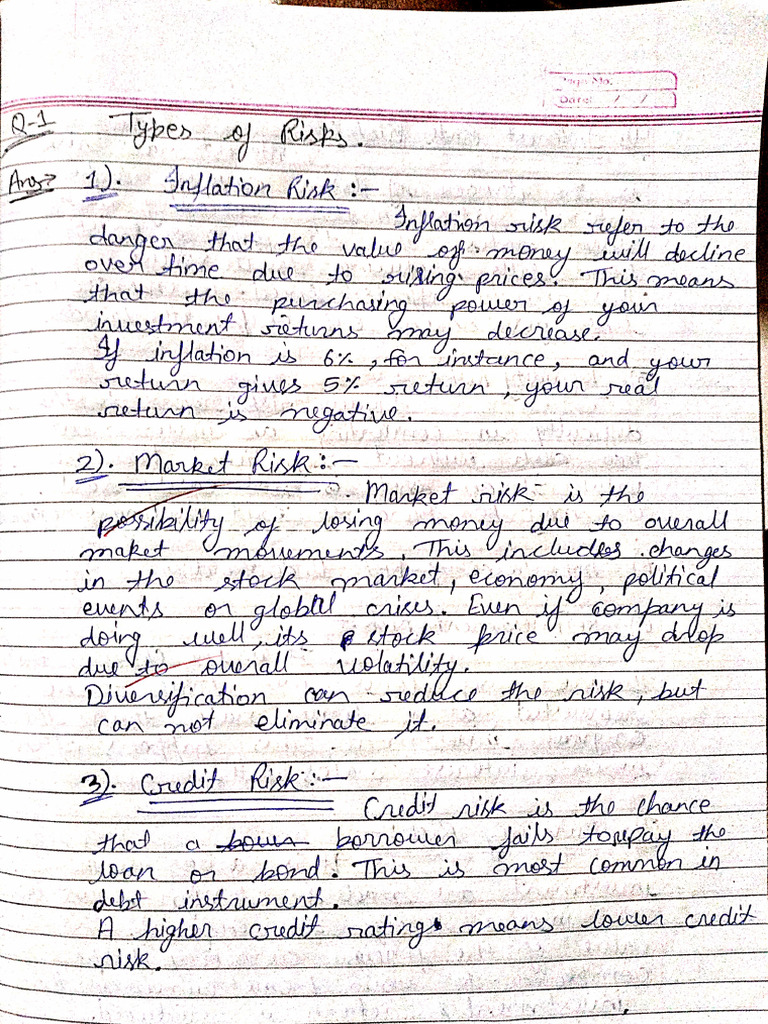 Page No.
Date: / /
Q-1 Types of Risks.
Ans→ 1). Inflation Risk :-
Inflation risk refer to the
danger that the value of money will decline
over time due to rising prices. This means
that the purchasing power of your
investment returns may decrease.
If inflation is 6%, for instance, and your
return gives 5% return, your real
return is negative.
2). Market Risk :-
Market risk is the
possibility of losing money due to overall
market movements. This includes changes
in the stock market, economy, political
events or global crises. Even if company is
doing well, its stock price may drop
due to overall volatility.
Diversification can reduce the risk, but
can not eliminate it.
3). Credit Risk :-
Credit risk is the chance
that a borrower fails to repay the
loan or bond. This is most common in
debt instrument.
A higher credit rating means lower credit
risk.